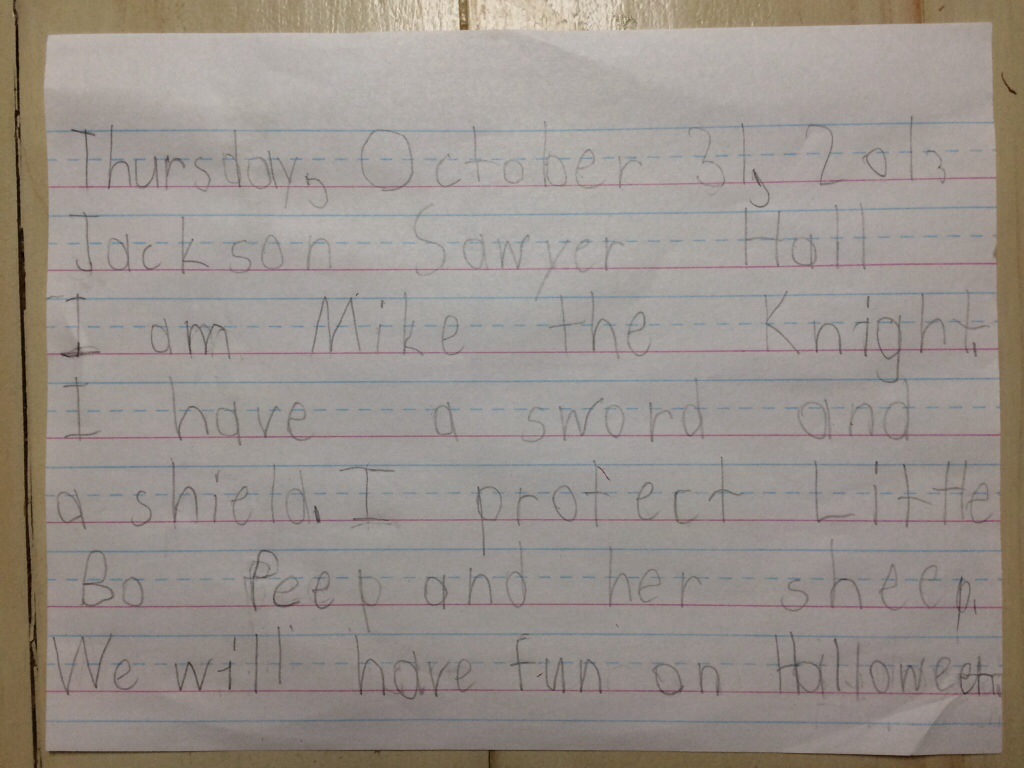 Thursday, October 31, 2013
Jackson Sawyer Hall
I am Mike the Knight.
I have a sword and
a shield. I protect Little
Bo Peep and her sheep.
We will have fun on Halloween.